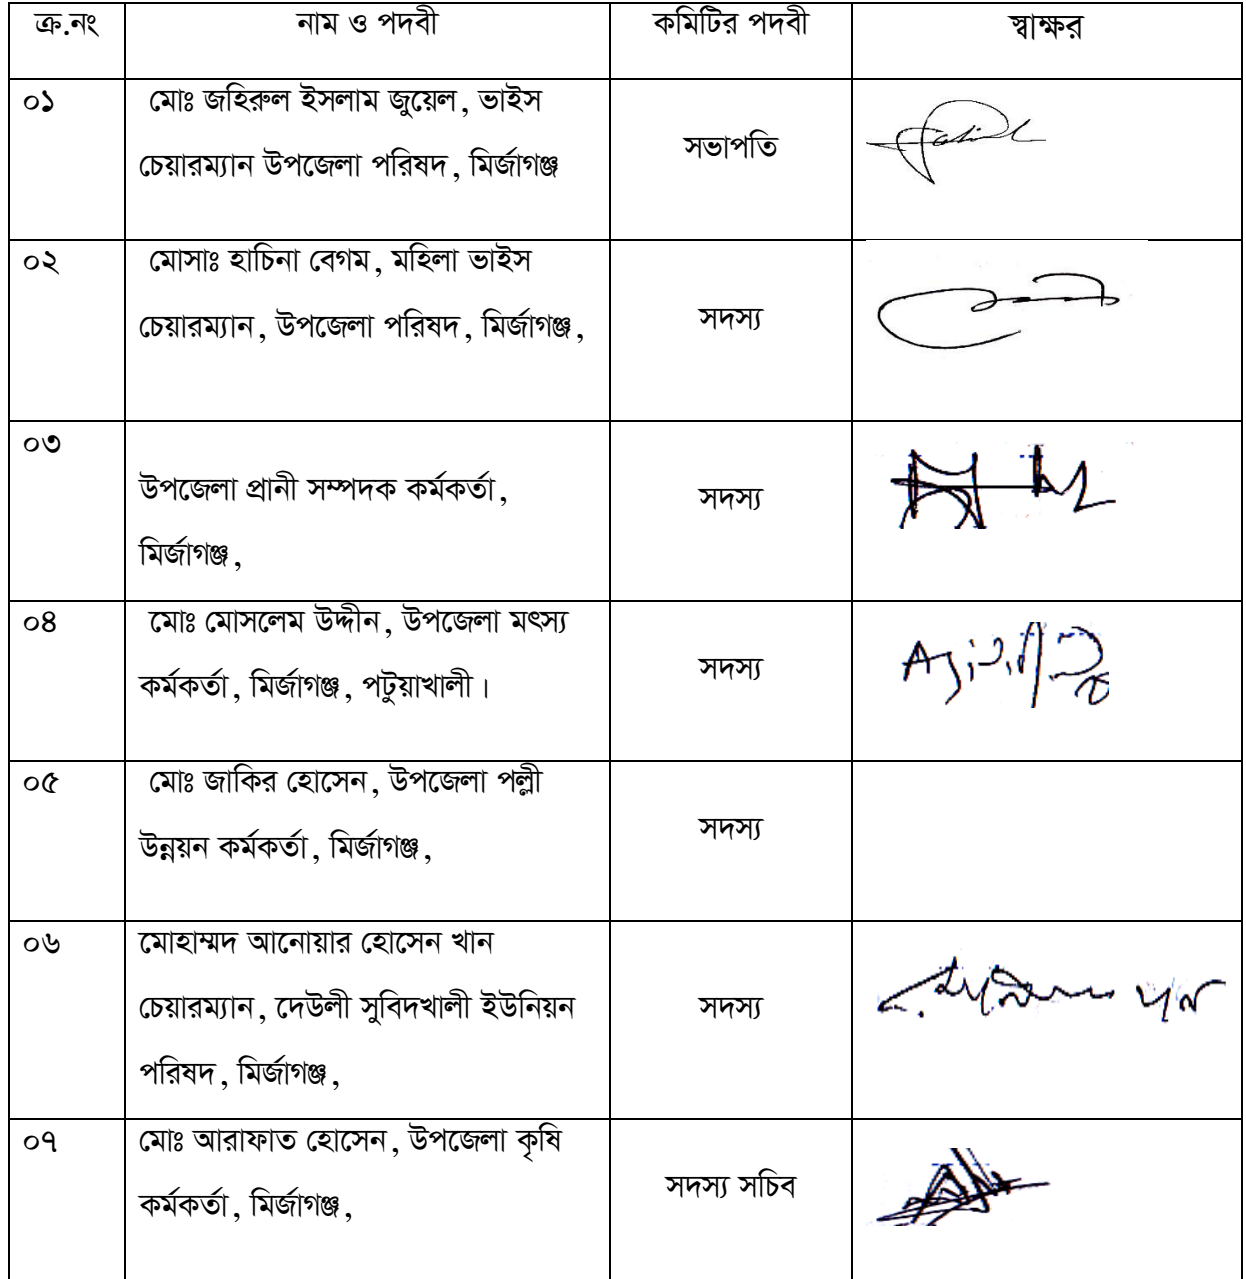 ক্র.নং নাম ও পদবী কমিটির পদবী স্বাক্ষর
০১ মোঃ জহিরুল ইসলাম জুয়েল, ভাইস
চেয়ারম্যান উপজেলা পরিষদ, মির্জাগঞ্জ
সভাপতি
০২ মোসাঃ হাচিনা বেগম, মহিলা ভাইস
চেয়ারম্যান, উপজেলা পরিষদ, মির্জাগঞ্জ,
সদস্য
০৩
উপজেলা প্রানী সম্পদক কর্মকর্তা,
মির্জাগঞ্জ,
সদস্য
০৪ মোঃ মোসলেম উদ্দীন, উপজেলা মৎস্য
কর্মকর্তা, মির্জাগঞ্জ, পটুয়াখালী।
সদস্য
০৫ মোঃ জাকির হোসেন, উপজেলা পল্লী
উন্নয়ন কর্মকর্তা, মির্জাগঞ্জ,
সদস্য
০৬ মোহাম্মদ আনোয়ার হোসেন খান
চেয়ারম্যান, দেউলী সুবিদখালী ইউনিয়ন
পরিষদ, মির্জাগঞ্জ,
সদস্য
০৭ মোঃ আরাফাত হোসেন, উপজেলা কৃষি
কর্মকর্তা, মির্জাগঞ্জ,
সদস্য সচিব